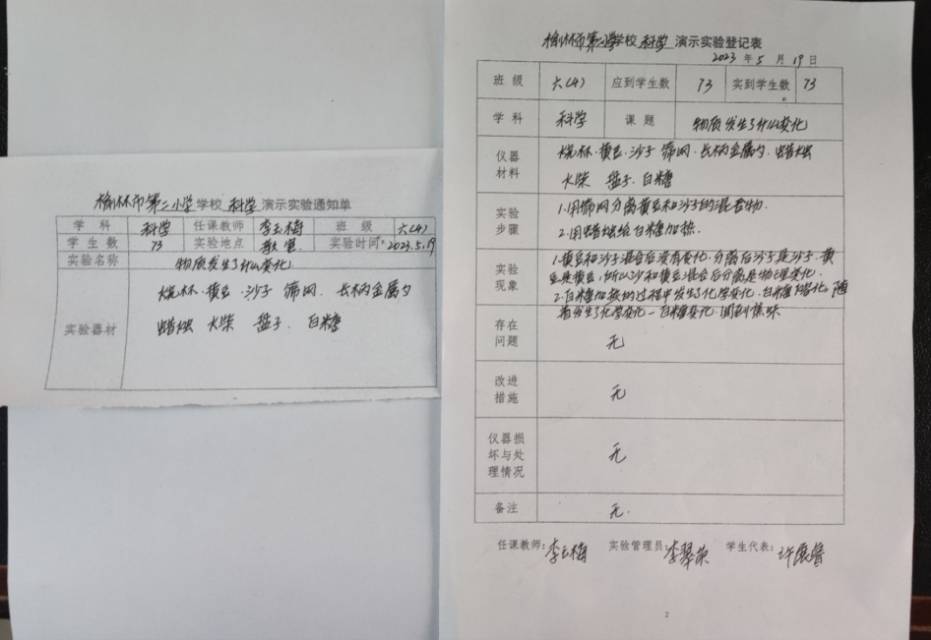 榆林市第二小学学校 科学 演示实验通知单
学 科 科学 任课教师 李玉梅 班 级 六(4)
学生数 73 实验地点 教室 实验时间 2023.5.19
实验名称 物质发生了什么变化
烧杯·黄豆·沙子 筛网·长柄金属勺
实验器材 蜡烛 火柴 盘子·白糖
榆林市第二小学学校 科学 演示实验登记表
2023 年 5 月 19 日
班 级 六(4) 应到学生数 73 实到学生数 73
学 科 科学 课 题 物质发生了什么变化
仪器 烧杯·黄豆·沙子 筛网·长柄金属勺·蜡烛
材料 火柴 盘子 白糖
实验 1.用筛网分离黄豆和沙子的混合物.
步骤 2.用蜡烛给白糖加热.
实验 1.黄豆和沙子混合后没有变化.分离后沙子是沙子.黄
现象 豆是黄豆,所以沙和黄豆混合后分离是物理变化.
2.白糖加热的过程中发生了化学变化.白糖熔化.随
着发生了化学变化—白糖变化.闻到焦味.
存在
问题 无
改进
措施 无
仪器损
坏与处 无
理情况
备注 无.
任课教师:李玉梅 实验管理员:李翠荣 学生代表:
2